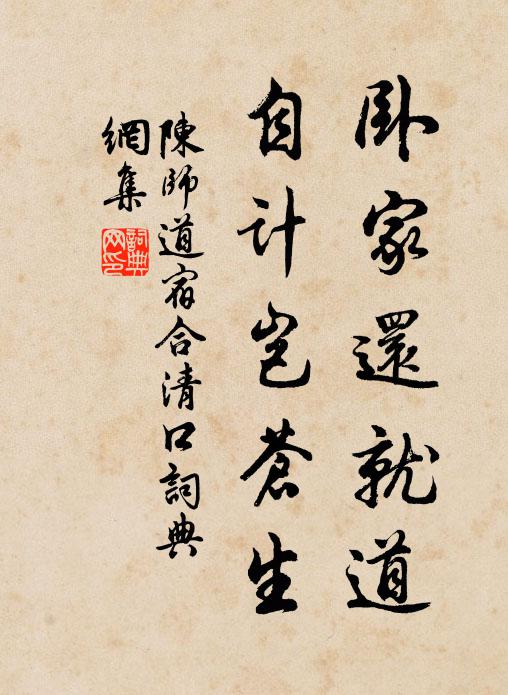 卧家還就道
自计岂蒼生
陳師道宿合清口詞典
網集
詞典
网印